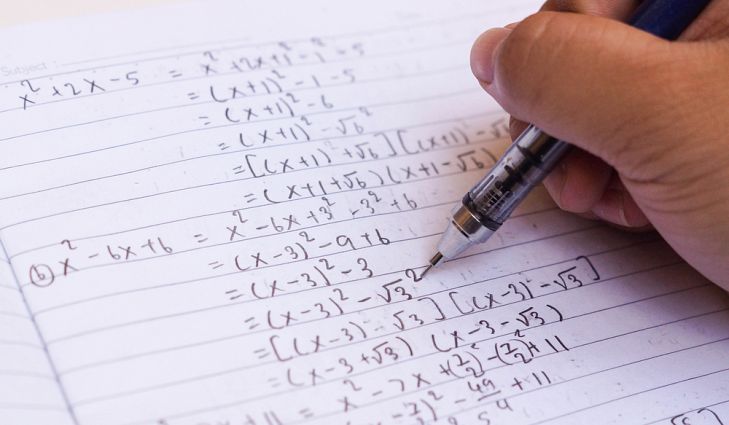 Subject :
x² + 2x - 5 = x² + 2x + 1² - 1² - 5
= (x+1)² - 1 - 5
= (x+1)² - 6
= (x+1)² - √6²
= [(x+1) + √6] [(x+1) - √6]
= (x+1+√6) (x+1-√6)
(b) x² - 6x + 6 = x² - 6x + 3² - 3² + 6
= (x-3)² - 9 + 6
= (x-3)² - 3
= (x-3)² - √3²
= [(x-3) - √3] [(x-3) - √3]
= (x-3+√3) (x-3-√3)
x + 11 = x² - 7x + (7/2)² - (7/2)² + 11
- 49/4 + 11